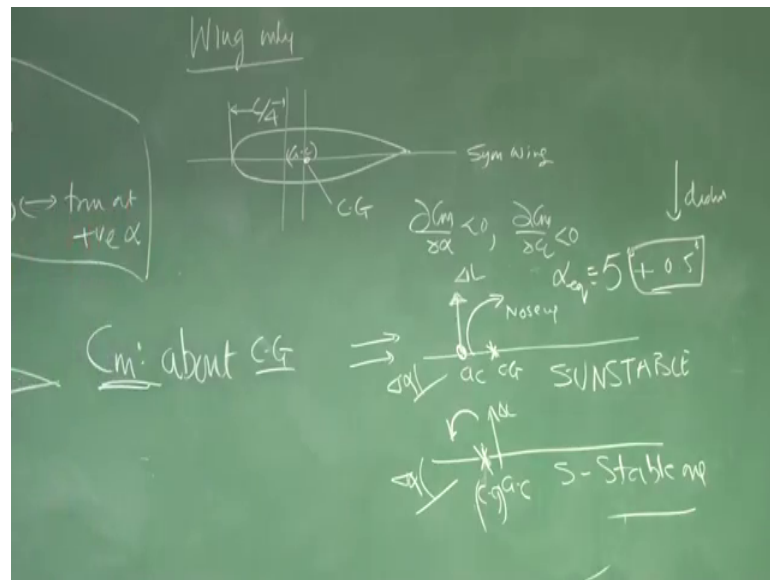 Wing only
c/4
(a.c)
Sym wing
C.G
⟷ trim at
+ve α
∂Cm/∂α <0, ∂Cm/∂CL <0
αeq = 5 + 0.5°
ΔL
Nose up
Cm: about C.G ⟹
Δα
ac CG S.UNSTABLE
ΔL
Δα
(c.g) a.c S-Stable